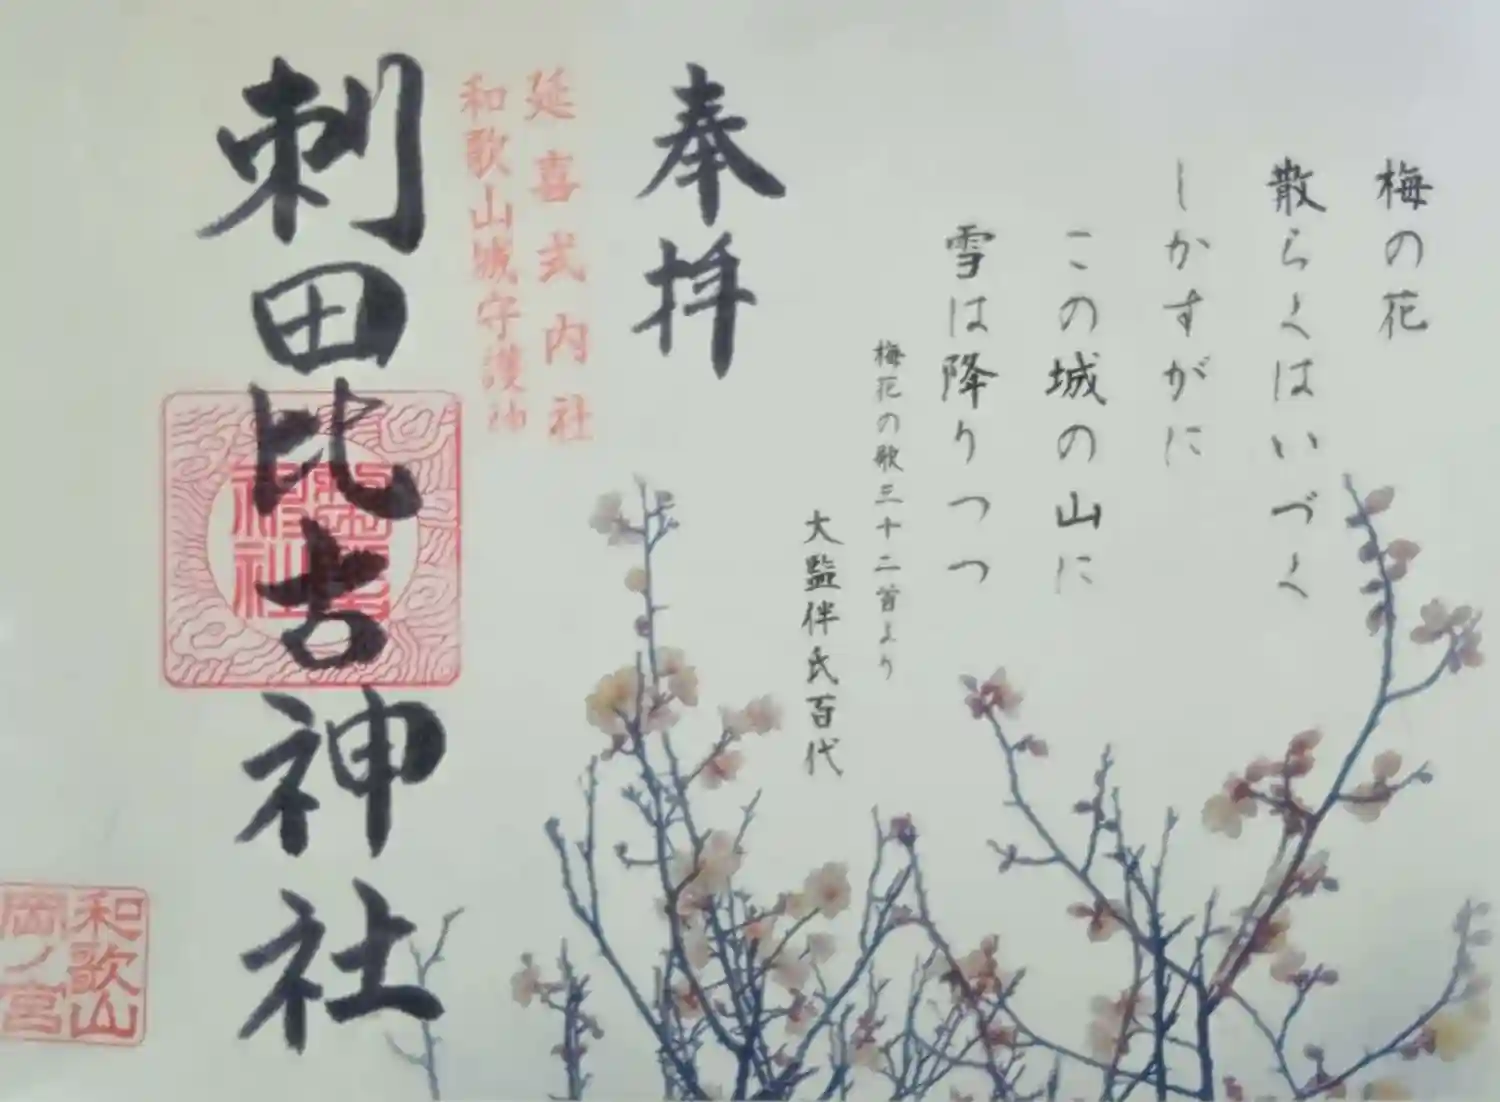 梅の花
散らくはいづく
しかすがに
この城の山に
雪は降りつつ
梅花の歌三十二首より
大監伴氏百代
奉拝
延喜式内社
和歌山城守護神
刺田比古神社
和歌山
岡ノ宮